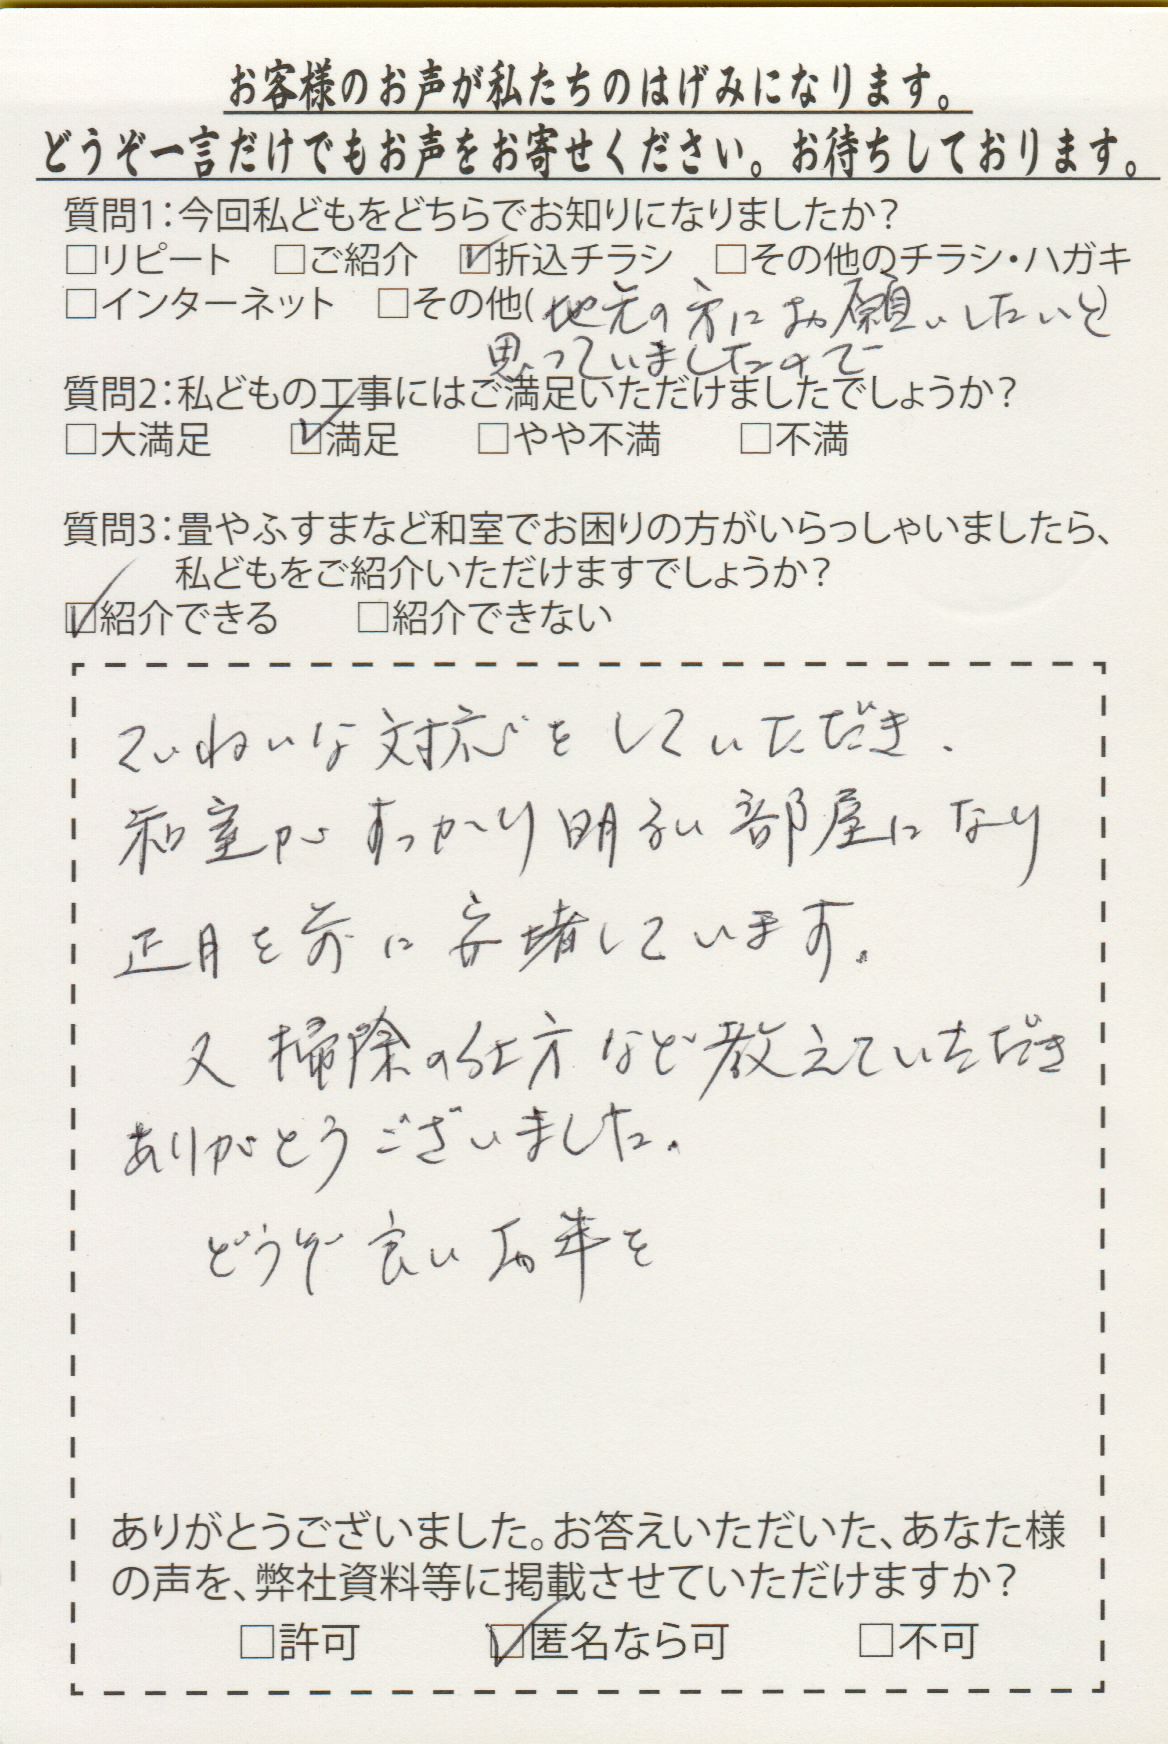 お客様のお声が私たちのはげみになります。
どうぞ一言だけでもお声をお寄せください。お待ちしております。
質問1:今回私どもをどちらでお知りになりましたか?
□リピート □ご紹介 ☑折込チラシ □その他のチラシ・ハガキ
□インターネット □その他(地元の方にお願いしたいと)
思っていましたので
質問2:私どもの工事にはご満足いただけましたでしょうか?
□大満足 ☑満足 □やや不満 □不満
質問3:畳やふすまなど和室でお困りの方がいらっしゃいましたら、
私どもをご紹介いただけますでしょうか?
☑紹介できる □紹介できない
ていねいな対応をしていただき、
和室がすっかり明るい部屋になり
正月を前に安堵しています。
又掃除の仕方など教えていただき
ありがとうございました。
どうぞ良いお年を
ありがとうございました。お答えいただいた、あなた様
の声を、弊社資料等に掲載させていただけますか?
□許可 ☑匿名なら可 □不可